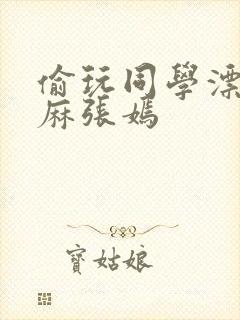 偷玩同學漂
麻張媽
寶姑娘